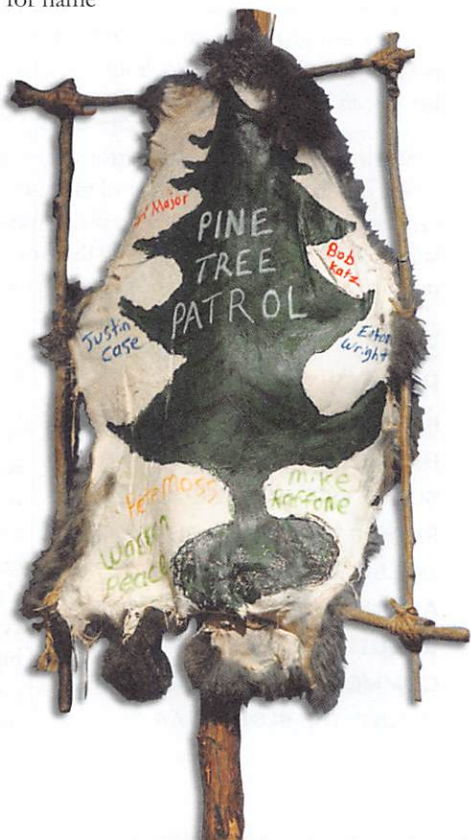 for name
Major
PINE
TREE
PATROL
Bob
Katz
Justin
Case
Wright
Pete Moss
Mike
Raffone
Warren
Peace